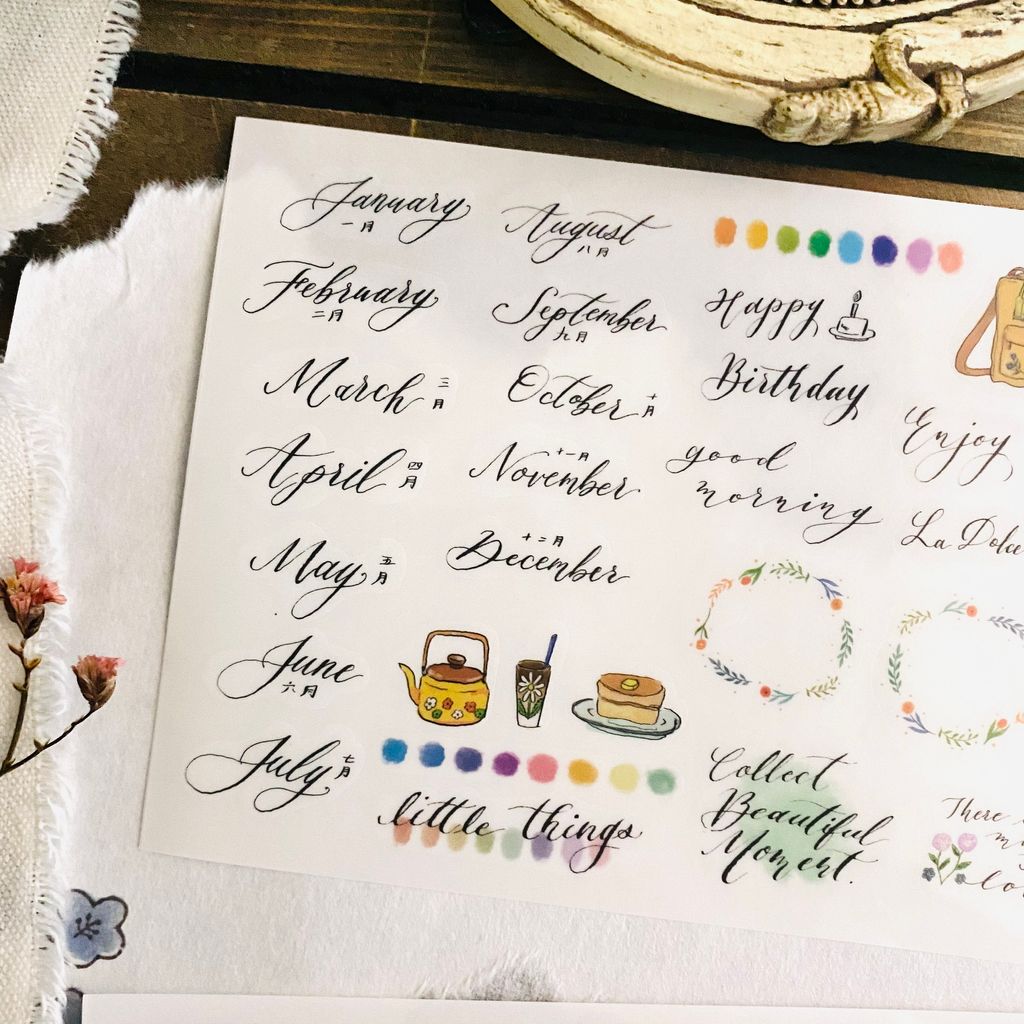 January
一月
February
二月
March 三月
April 四月
May 五月
June
六月
July 七月
August
八月
September
九月
October 十月
十一月
November
十二月
December
little things
Happy
Birthday
good
morning
Collect
Beautiful
Moment.
Enjoy
La Dolce
There